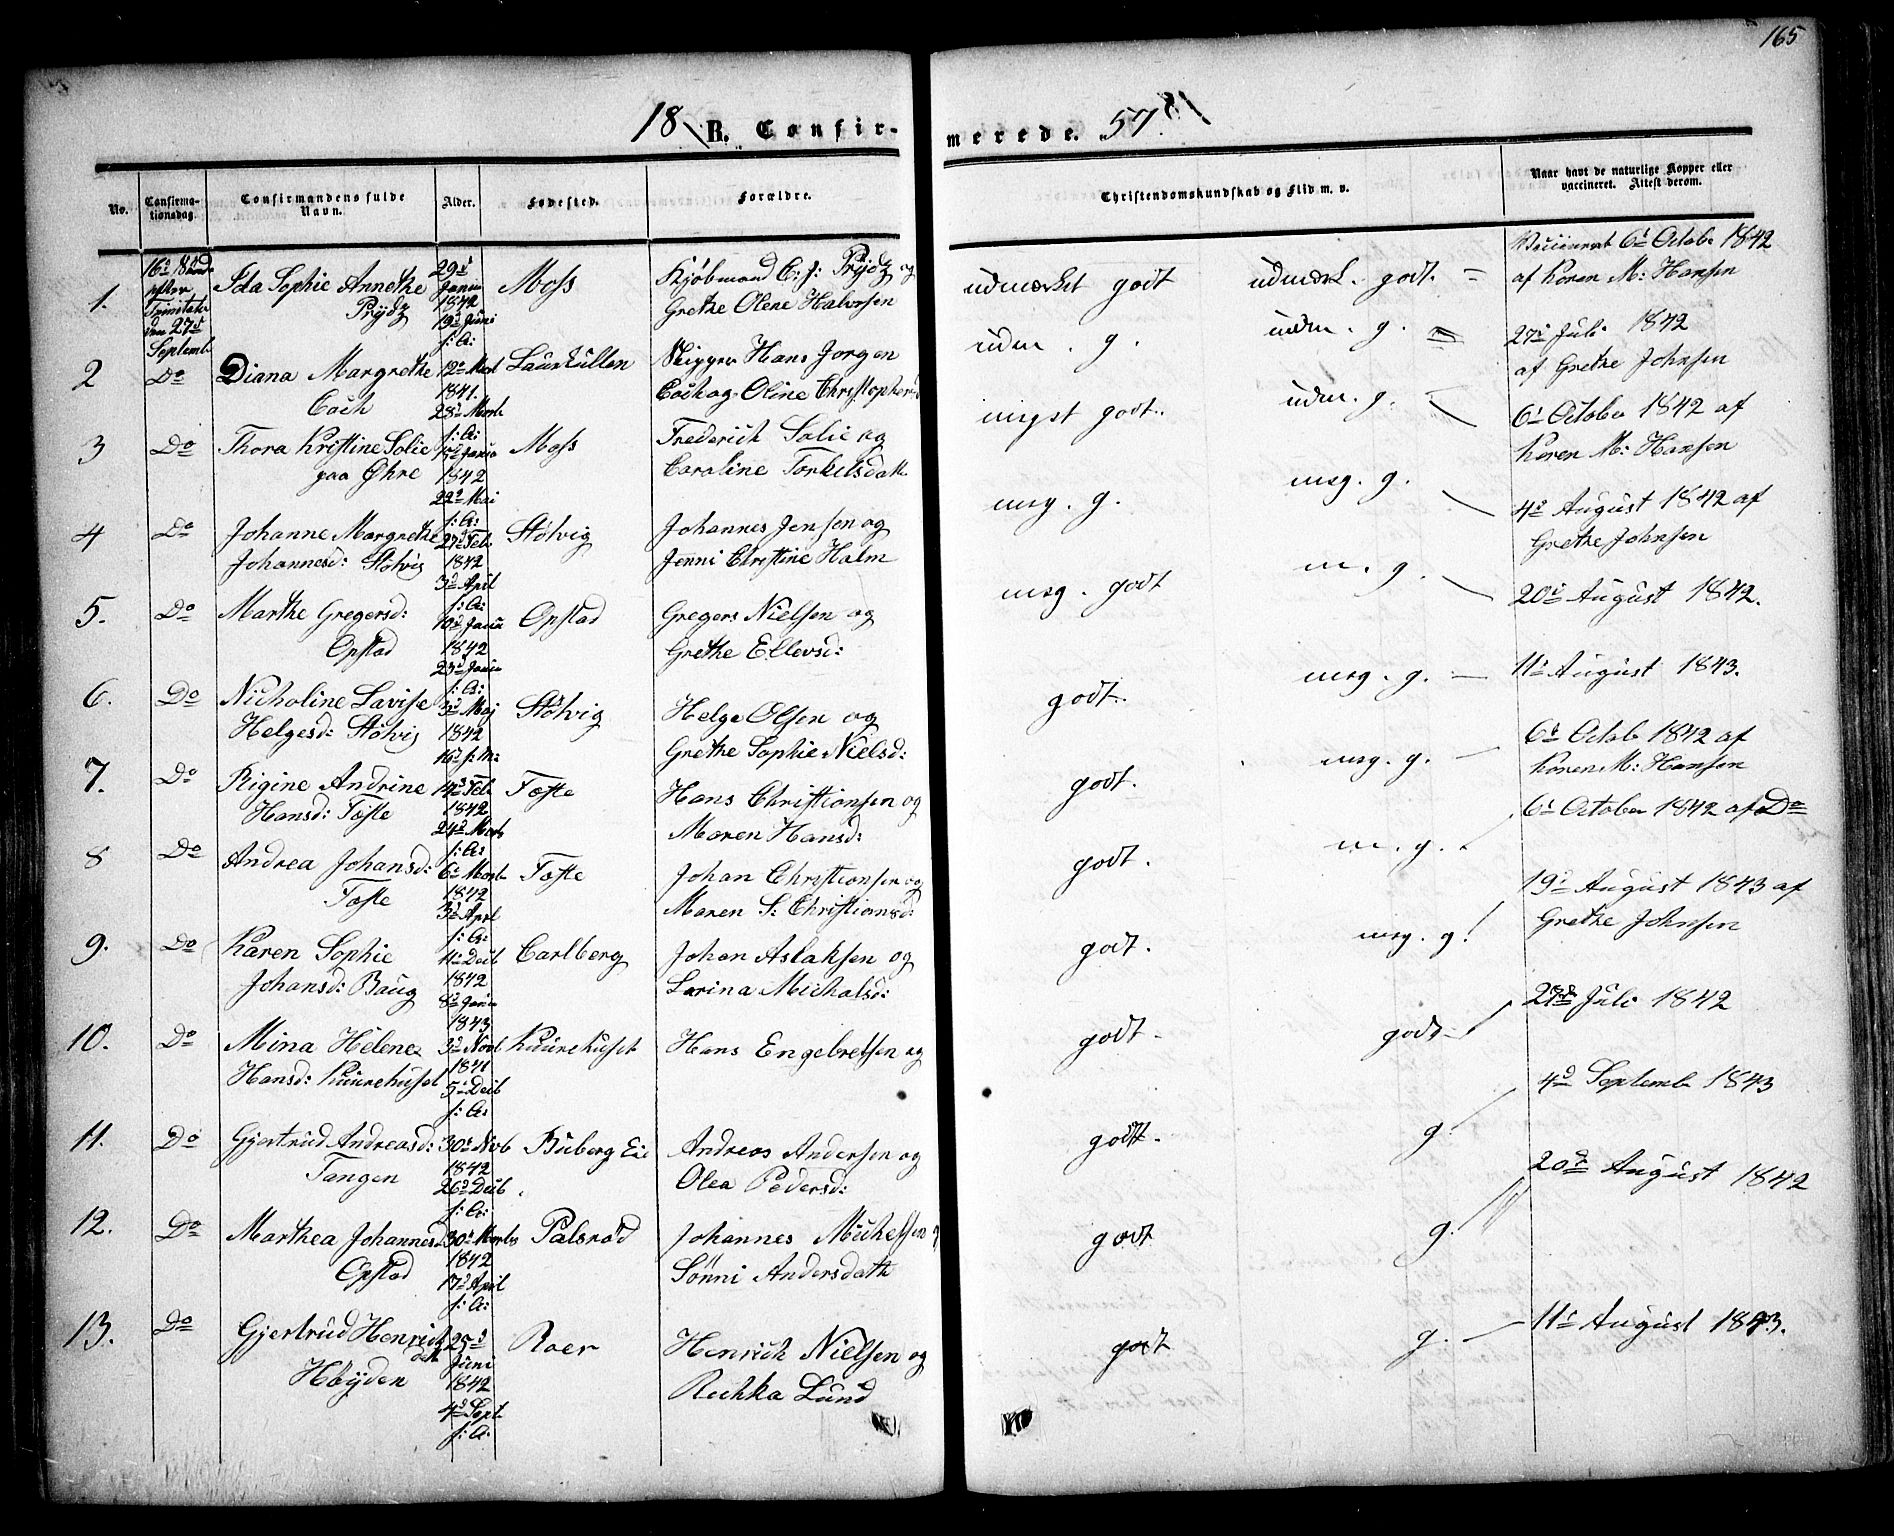 165
18 B. Confirmerede. 57.
No.
Confirmationsdag.
Confirmandens fulde Navn.
Alder.
Fødested.
Forældre.
Christendomskundskab og Flid m. v.
Naar havt de naturlige Kopper eller vaccineret. Attest derom.
1. 16de Sønd efter Trinitats den 27d Septemb
Ida Sophie Annethe Prÿdz
29d Janu 1842 19d Juni f: A:
Moss
Kjøbmand C: J: Prÿdz og
Grethe Olene Halvorsen
udmærket godt udmærk. godt. =
Vaccineret 6d Octobr 1842
af Karen M: Hansen
2 Do Diana Margrethe Coch
12d Mart 1841. 28d Marts f: A:
Laurkullen
Skipper Hans Jørgen
Coch og Oline Christophersd
udm. g. udm. g. =
27d Juli 1842
af Grethe Johnsen
3 Do Thora Kristine Solie
paa Øhre
Janu 1842 22d Mai f: A:
Moss
Frederich Solie og
Caroline Torkelsdatt
mgst godt. udm. g.
6d October 1842 af
Karen M: Hansen
4 Do Johanne Margrethe
Johannesd: Støtvig
27d Feb 1842 3d April f: A:
Støtvig
Johannes Jensen og
Jenni Christine Halm
meg. g. meg. g.
4d August 1842 af
Grethe Johnsen
5. Do Marthe Gregersd:
Opstad
10d Janu 1842 23d Janu f: A:
Opstad
Gregers Nielsen og
Grethe Ellevsd:
meg. godt m. g.
20d August 1842.
6. Do Nicholine Lavise
Helgesd: Støtvig
3d Maj 1842 16d f: M:
Støtvig
Helge Olsen og
Grethe Sophie Nielsd:
godt. meg. g.
11d August 1843.
7. Do Rigine Andrine
Hansd: Tofte
14d Feb 1842 24d Marts f: A:
Tofte
Hans Christiansen og
Maren Hansd:
godt. meg. g.
6d Octob 1842 af
Karen M: Hansen
8 Do Andrea Johansd:
Tofte
6d Marts 1842 3d Aprl f: A:
Tofte
Johan Christiansen og
Maren S: Christiansd:
godt. m. g.
6d October 1842 af Do
9. Do Karen Sophie
Johansd: Baug
11d Decb 1842 8d Janu 1843
Carlberg
Johan Aslaksen og
Larina Michalsd:
godt. meg. g!
19d August 1843 af
Grethe Johnsen
10. Do Mina Helene
Hansd: Kuurehuset
3d Novb 1841 5d Decb f: A:
Kuurehuset
Hans Engebretsen og
godt. godt
Juli 1842
11. Do Gjertrud Andreasd:
Tangen
30d Novb 1842 26d Decb f: A:
Buberg Eie
Andreas Andersen og
Olea Pedersd:
godt. g.
4d Septemb 1843
12. Do Marthea Johannesd
Opstad
30d Marts 1842 17d April f: A:
Palsrød
Johannes Michelsen og
Sønni Andersdath
godt g.
20d August 1842
13. Do Gjertrud Henrichdatt
Høÿden
25d Juni 1842 4d Sept f: A:
Roer
Henrich Nielsen og
Rechka Lund
godt g.
11d August 1843.